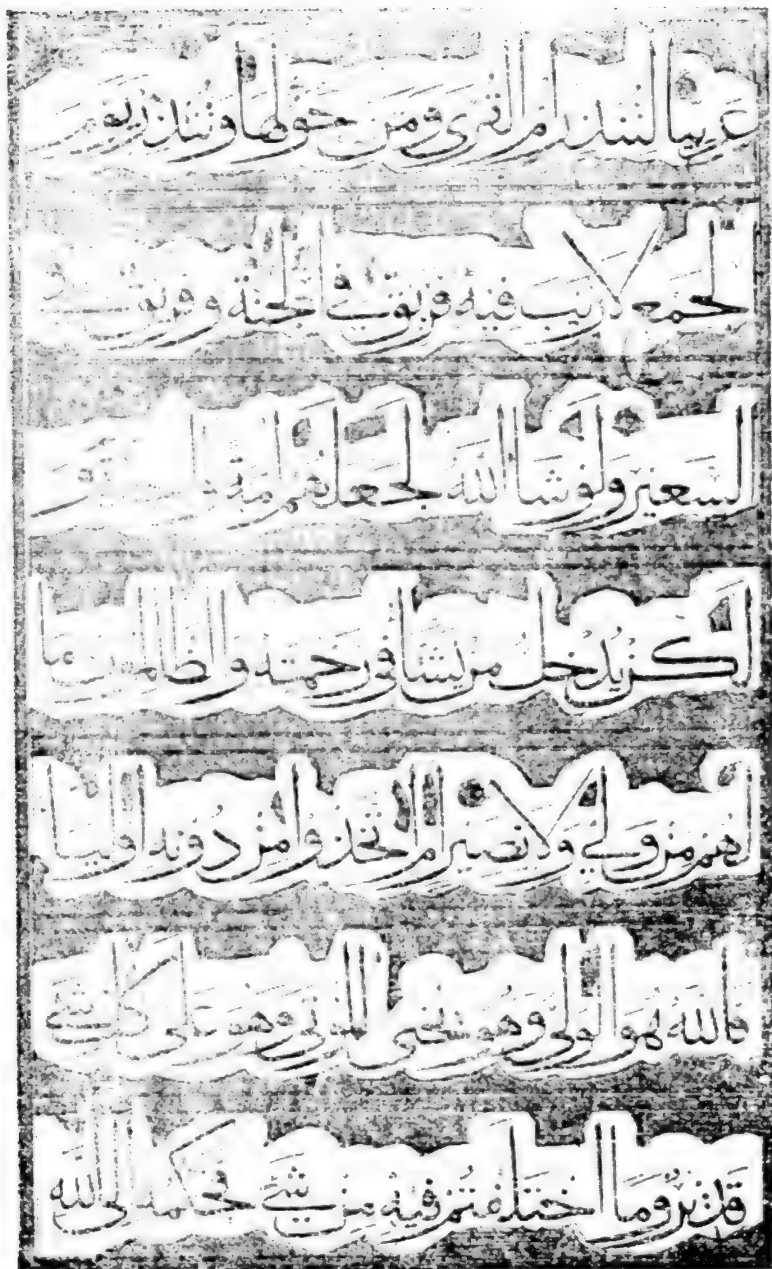 عربيا لتنذر ام القرى ومن حولها وتنذر يوم
الجمع لا ريب فيه فريق في الجنة وفريق في
السعير ولو شا الله لجعلهم امة
لكن يدخل من يشا في رحمته والظالمون ما
لهم من ولي ولا نصير ام اتخذوا من دونه اوليا
فالله هو الولي وهو يحيى الموتى وهو على كل شي
قدير وما اختلفتم فيه من شي فحكمه الى الله